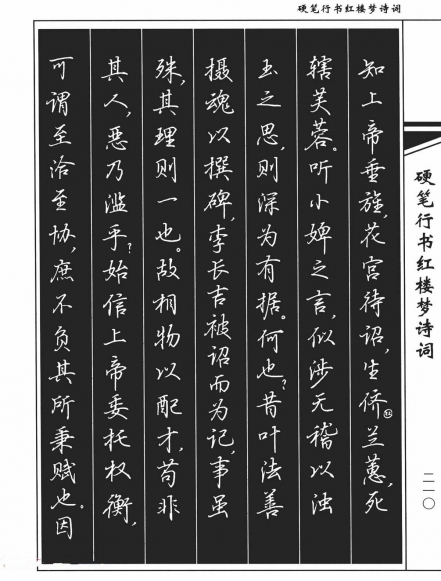 硬笔行书红楼梦诗词
知上帝垂旌,花宫待诏,生侪㊼兰蕙,死
辖芙蓉。听小婢之言,似涉无稽以浊
玉之思,则深为有据。何也?昔叶法善
摄魂以撰碑,李长吉被诏而为记,事虽
殊,其理则一也。故相物以配才,苟非
其人,恶乃滥乎?始信上帝委托权衡,
可谓至洽至协,庶不负其所秉赋也。因
硬笔行书红楼梦诗词
二一〇